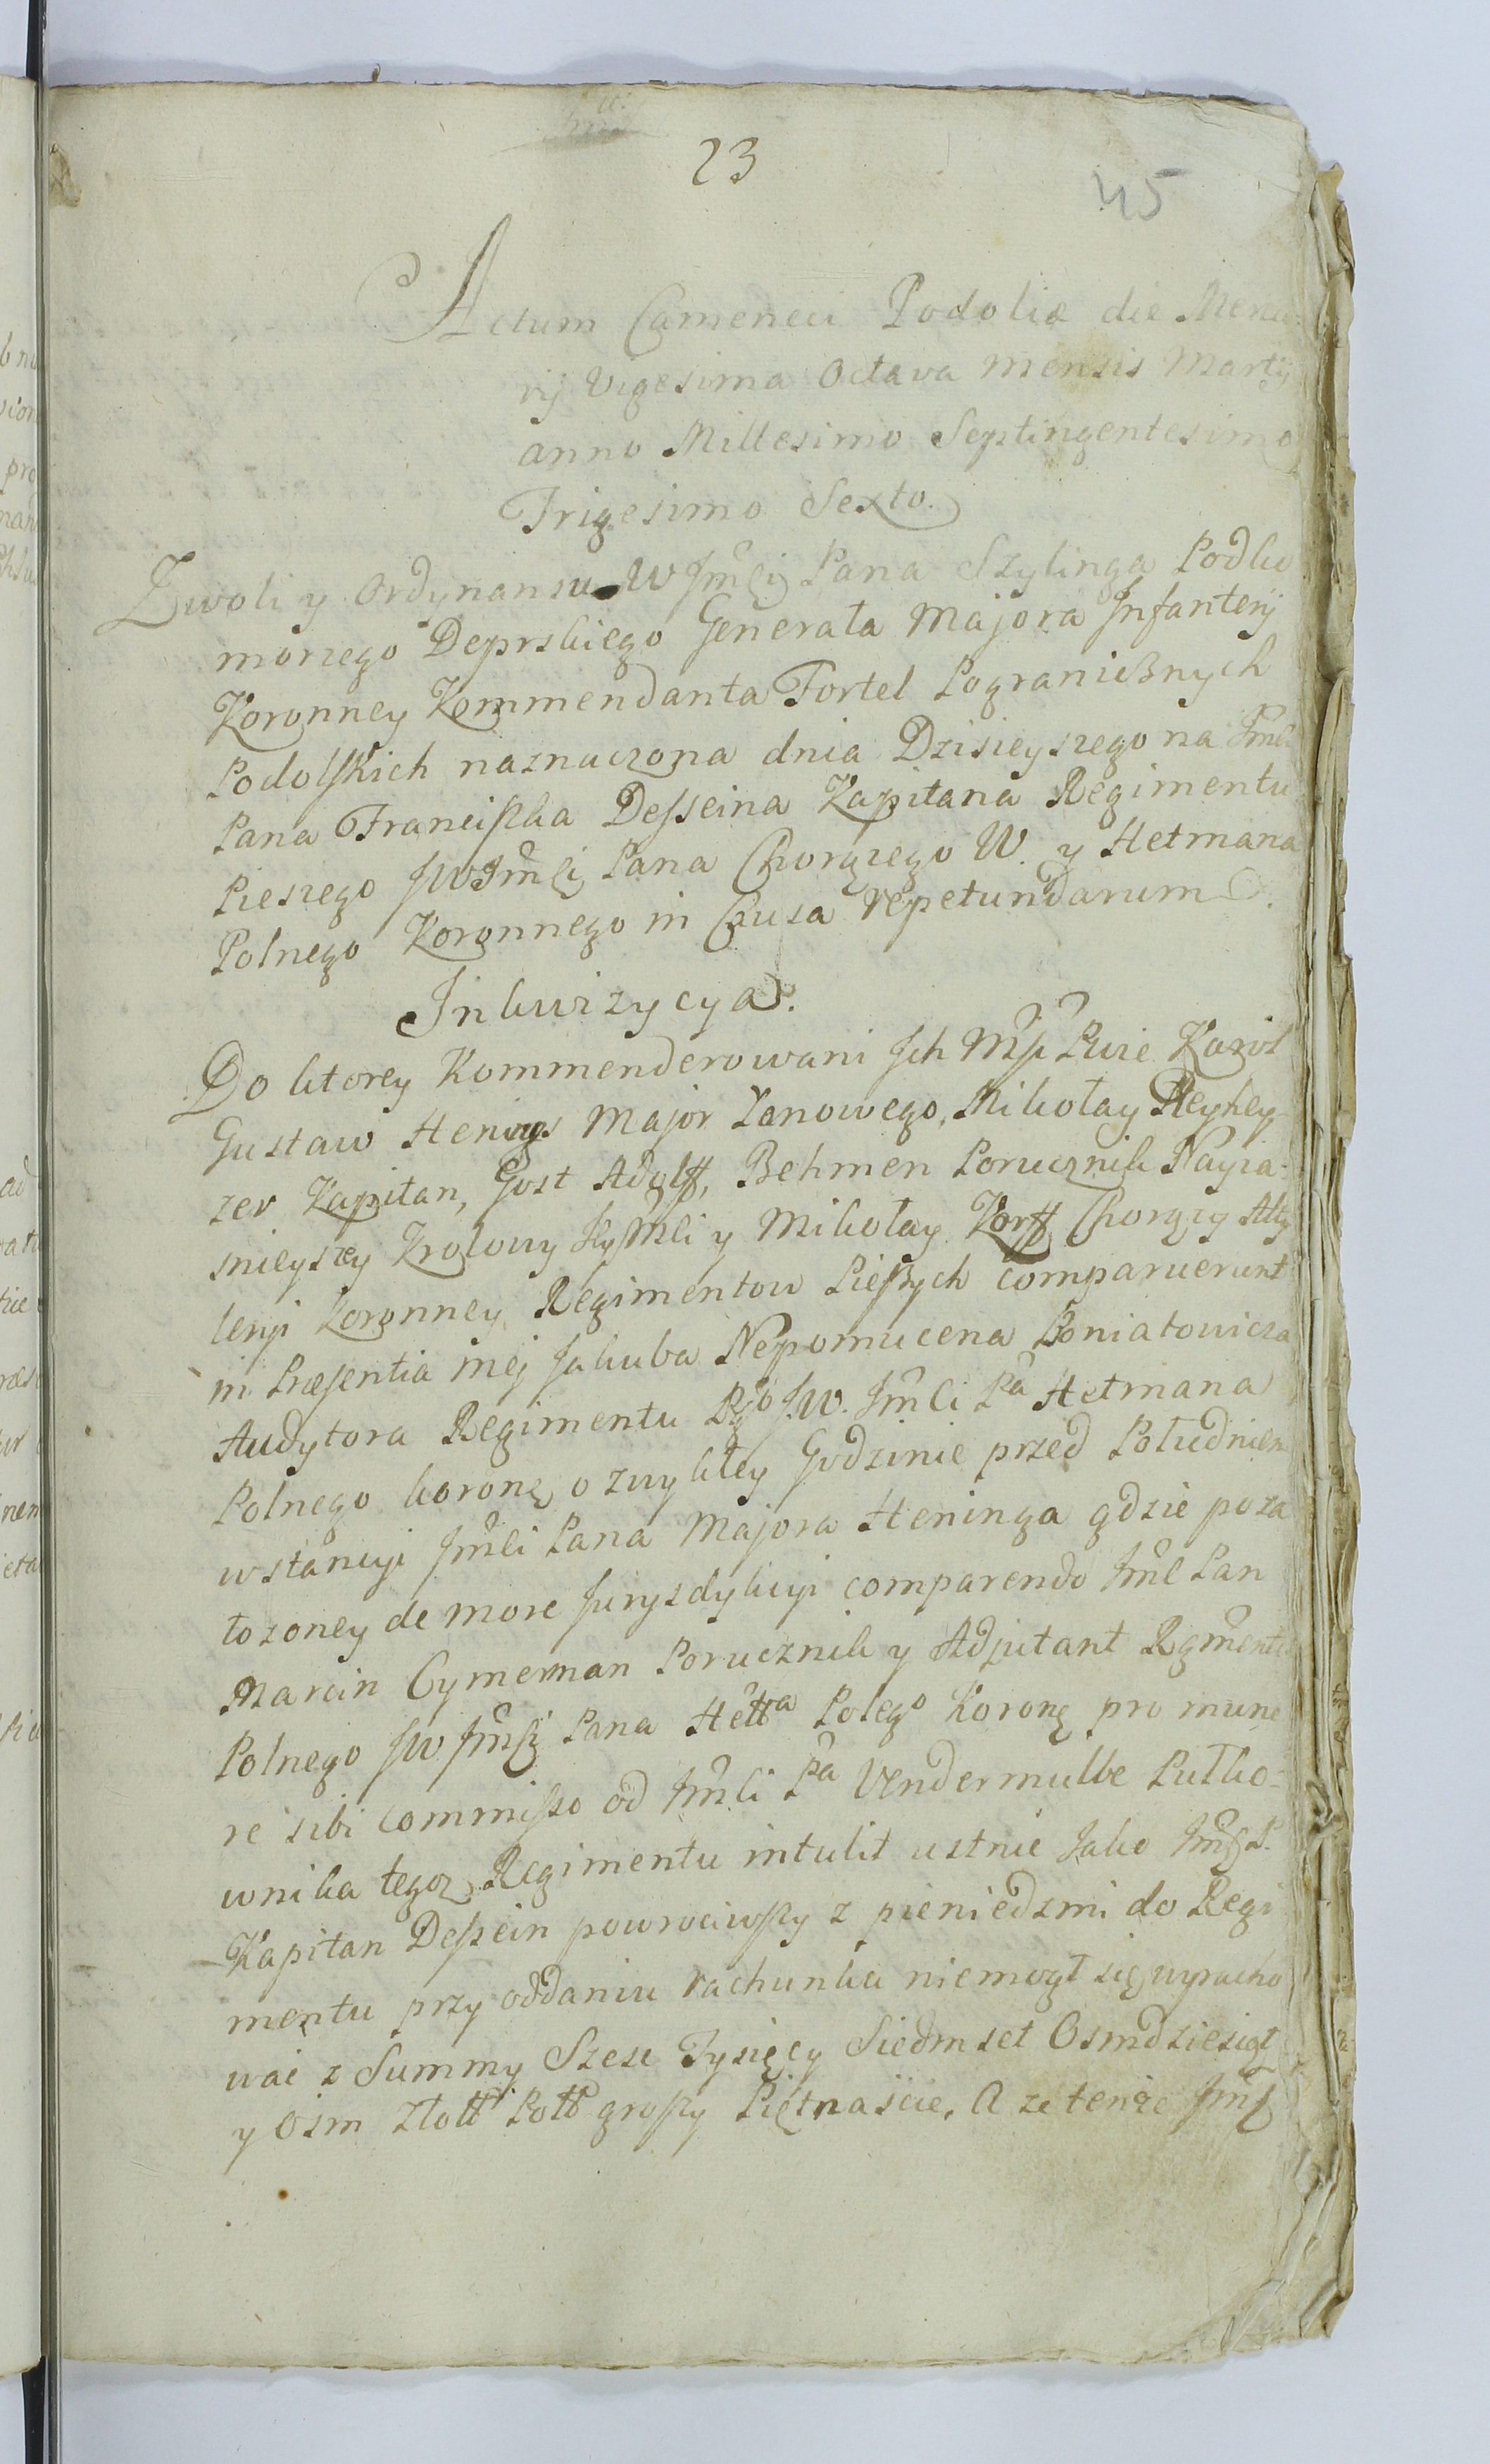 23
45
Actum Cameneci Podoliæ die Mercu
rij Vigesima Octava Mensis Martij
anno Millesimo Septingentesimo
Trigesimo Sexto.
Z woli y Ordynansu W Jmći Pana Szylinga Podko
morzego Deprskiego Generała Majora Infanterij
Koronney Kommendanta Fortec Pogranicßnych
Podolskich naznaczona dnia Dzisieyszego na Jmći
Pana Franciszka Desseina Kapitana Regimentu
Pieszego JWJmći Pana Chorążego W. y Hetmana
Polnego Koronnego in Causa repetundarum
Inkwizycya.
Do ktorey Kommenderowani Ich Mść Pwie Karol
Gustaw Henings Major Łanowego, Mikołay Heykey
zer Kapitan, Gost Adolff, Behmen Porucznik Nayia-
snieyszey Krolowy Jmći y Mikołay Korff Chorąży Alty
leryi Koronney Regimentow Pießych comparuerunt
in Præsentia mej Jakuba Nepomucena Poniatowicza
Audytora Regimentu JW. Jmći Pa Hetmana
Polnego koron, o zwykłey Godzinie przed Południem
w stancyi Jmći Pana Majora Heninga gdzie poza
łozoney de more Juryzdykcyi comparendo Jmć Pan
Marcin Cymerman Porucznik y Adjutant Rgmentu
Polnego JW Jmść Pana Hetta Polego Koron pro mune
re sibi commisso od Jmći Pa Vendermulbe Pułko-
wnika tegoz Regimentu intulit ustnie Jako Jmść P.
Kapitan Dessein powrociwszy z pieniedzmi do Regi
mentu przy oddaniu rachunku niemogł się wyracho
wać z Summy Szesc Tysięcy Siedmset Osmdziesiąt
y Osm Złott Poll groszy Piętnaście. A ze tenże Jmć